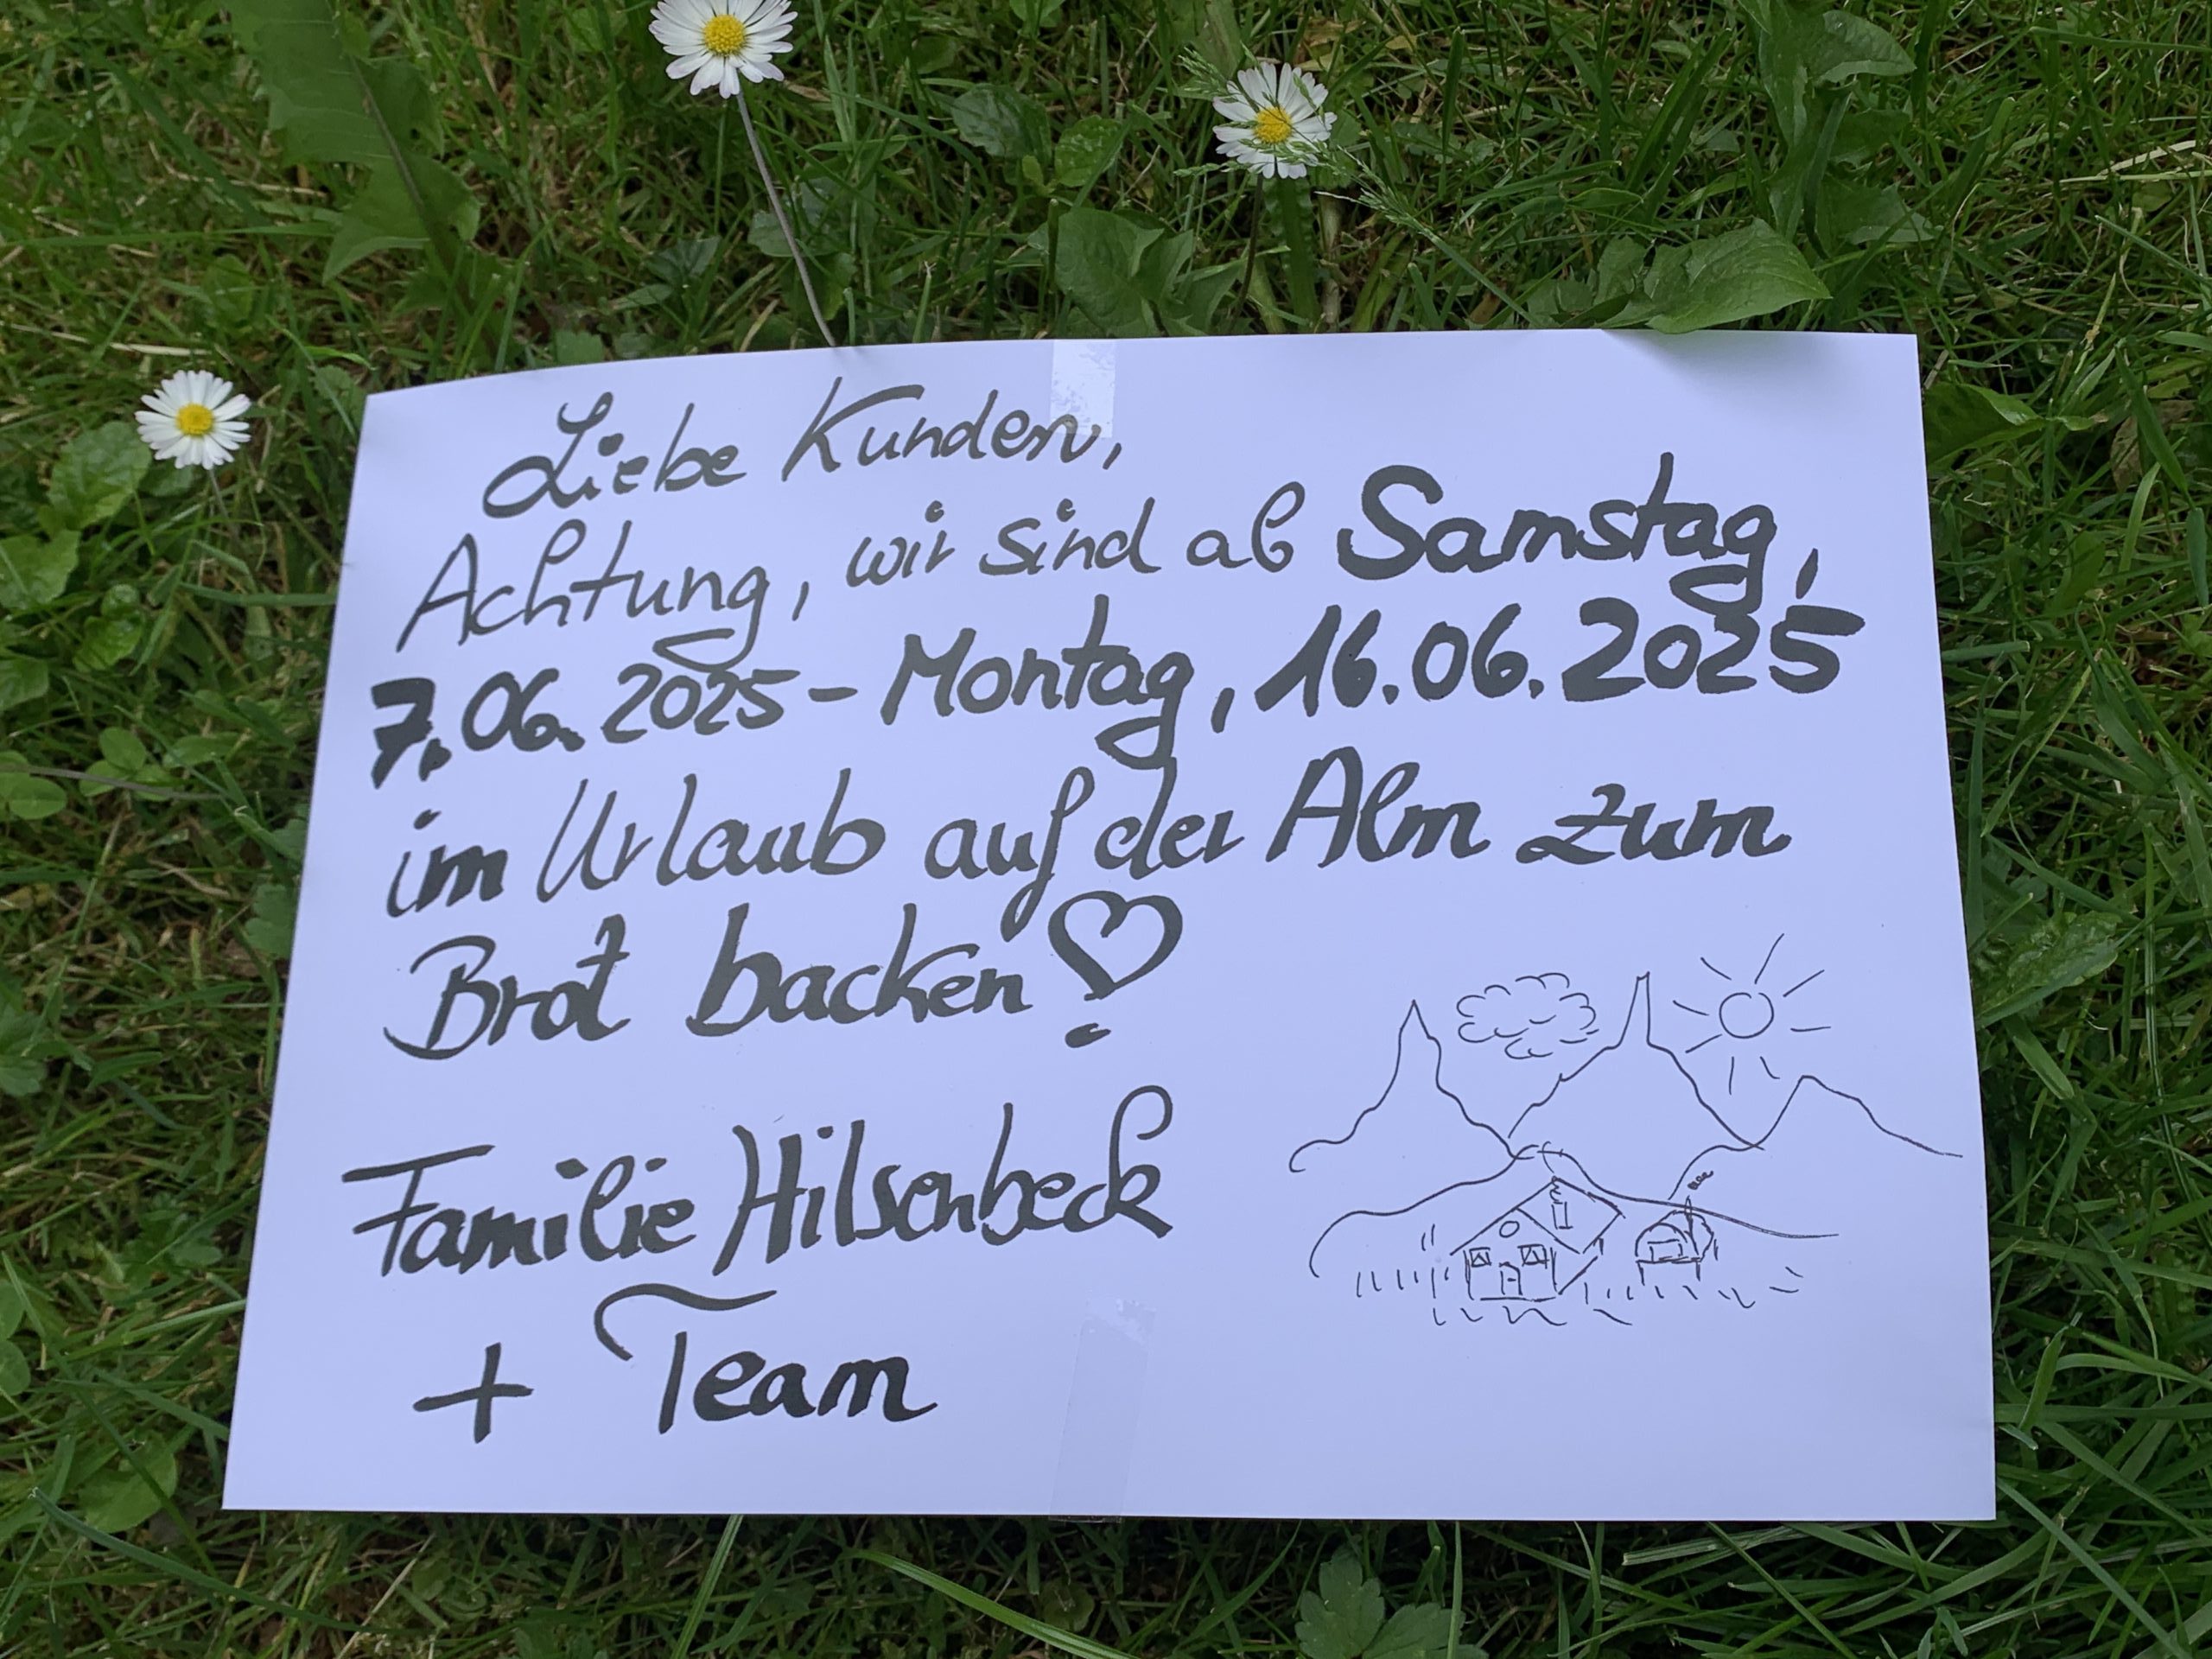 Liebe Kunden,
Achtung, wir sind ab Samstag,
7.06.2025 – Montag, 16.06.2025
im Urlaub auf der Alm zum
Brot backen
Familie Hilsenbeck
+ Team